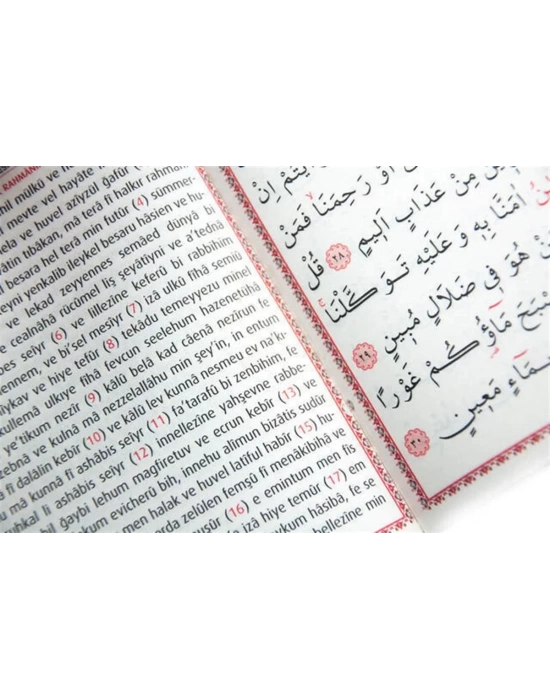 RAHMANİ
mil mülkü ve
meyte vel hayate
ve huvel azîyzül gafûr
tıbâkan, mâ terâ fî halkır rahman
besara hel terâ min futûr (4) sümmer-
yenkalib ileykel besaru hâsien ve hu-
ve lekad zeyyennes semâed dünyâ bi
cealnâhâ rücûmel liş şeyâtîyni ve a'tednâ
seîyr (6) ve lillezîne keferû bi rabbihim
ve bi'sel mesîyr (7) izâ ulkû fîhâ semiû
ve hiye tefûr (8) tekâdu temeyyezu minel
ulkıye fîhâ fevcun seelehum hazenetühâ
e'tikum nezîr (9) kâlû belâ kad câenâ nezîrun fe
ve kulnâ mâ nezzelallâhu min şey'in, in entum
fî dalâlin kebîr (10) ve kâlû lev kunnâ nesmeu ev na'k-
mâ kunnâ fî ashâbis seîyr (11) fa'terafû bi zenbihim, fe
li ashâbis seîyr (12) innellezîne yahşevne rabbe-
bil ğaybi lehum magfiretuv ve ecrun kebîr (13) ve
evicherû bih, innehu alîmun bizâtis sudûr
men halak ve huvel latîful habîr (15) hu-
zelûlen femşû fî menâkibihâ ve
(16) e emintum men fis
izâ hiye temûr (17) em
hâsibâ, fe se
bellezîne min
اِنْ
اَوْ رَحِمَنَا فَمَنْ
مِنْ عَذَابٍ اَلٖيمٍ ﴿٢٨﴾ قُلْ
اٰمَنَّا بِهٖ وَعَلَيْهِ تَوَكَّلْنَا
هُوَ فٖي ضَلَالٍ مُبٖينٍ ﴿٢٩﴾
مَٓاؤُ۬كُمْ غَوْرًا
مَعٖينٍ ﴿٣٠﴾